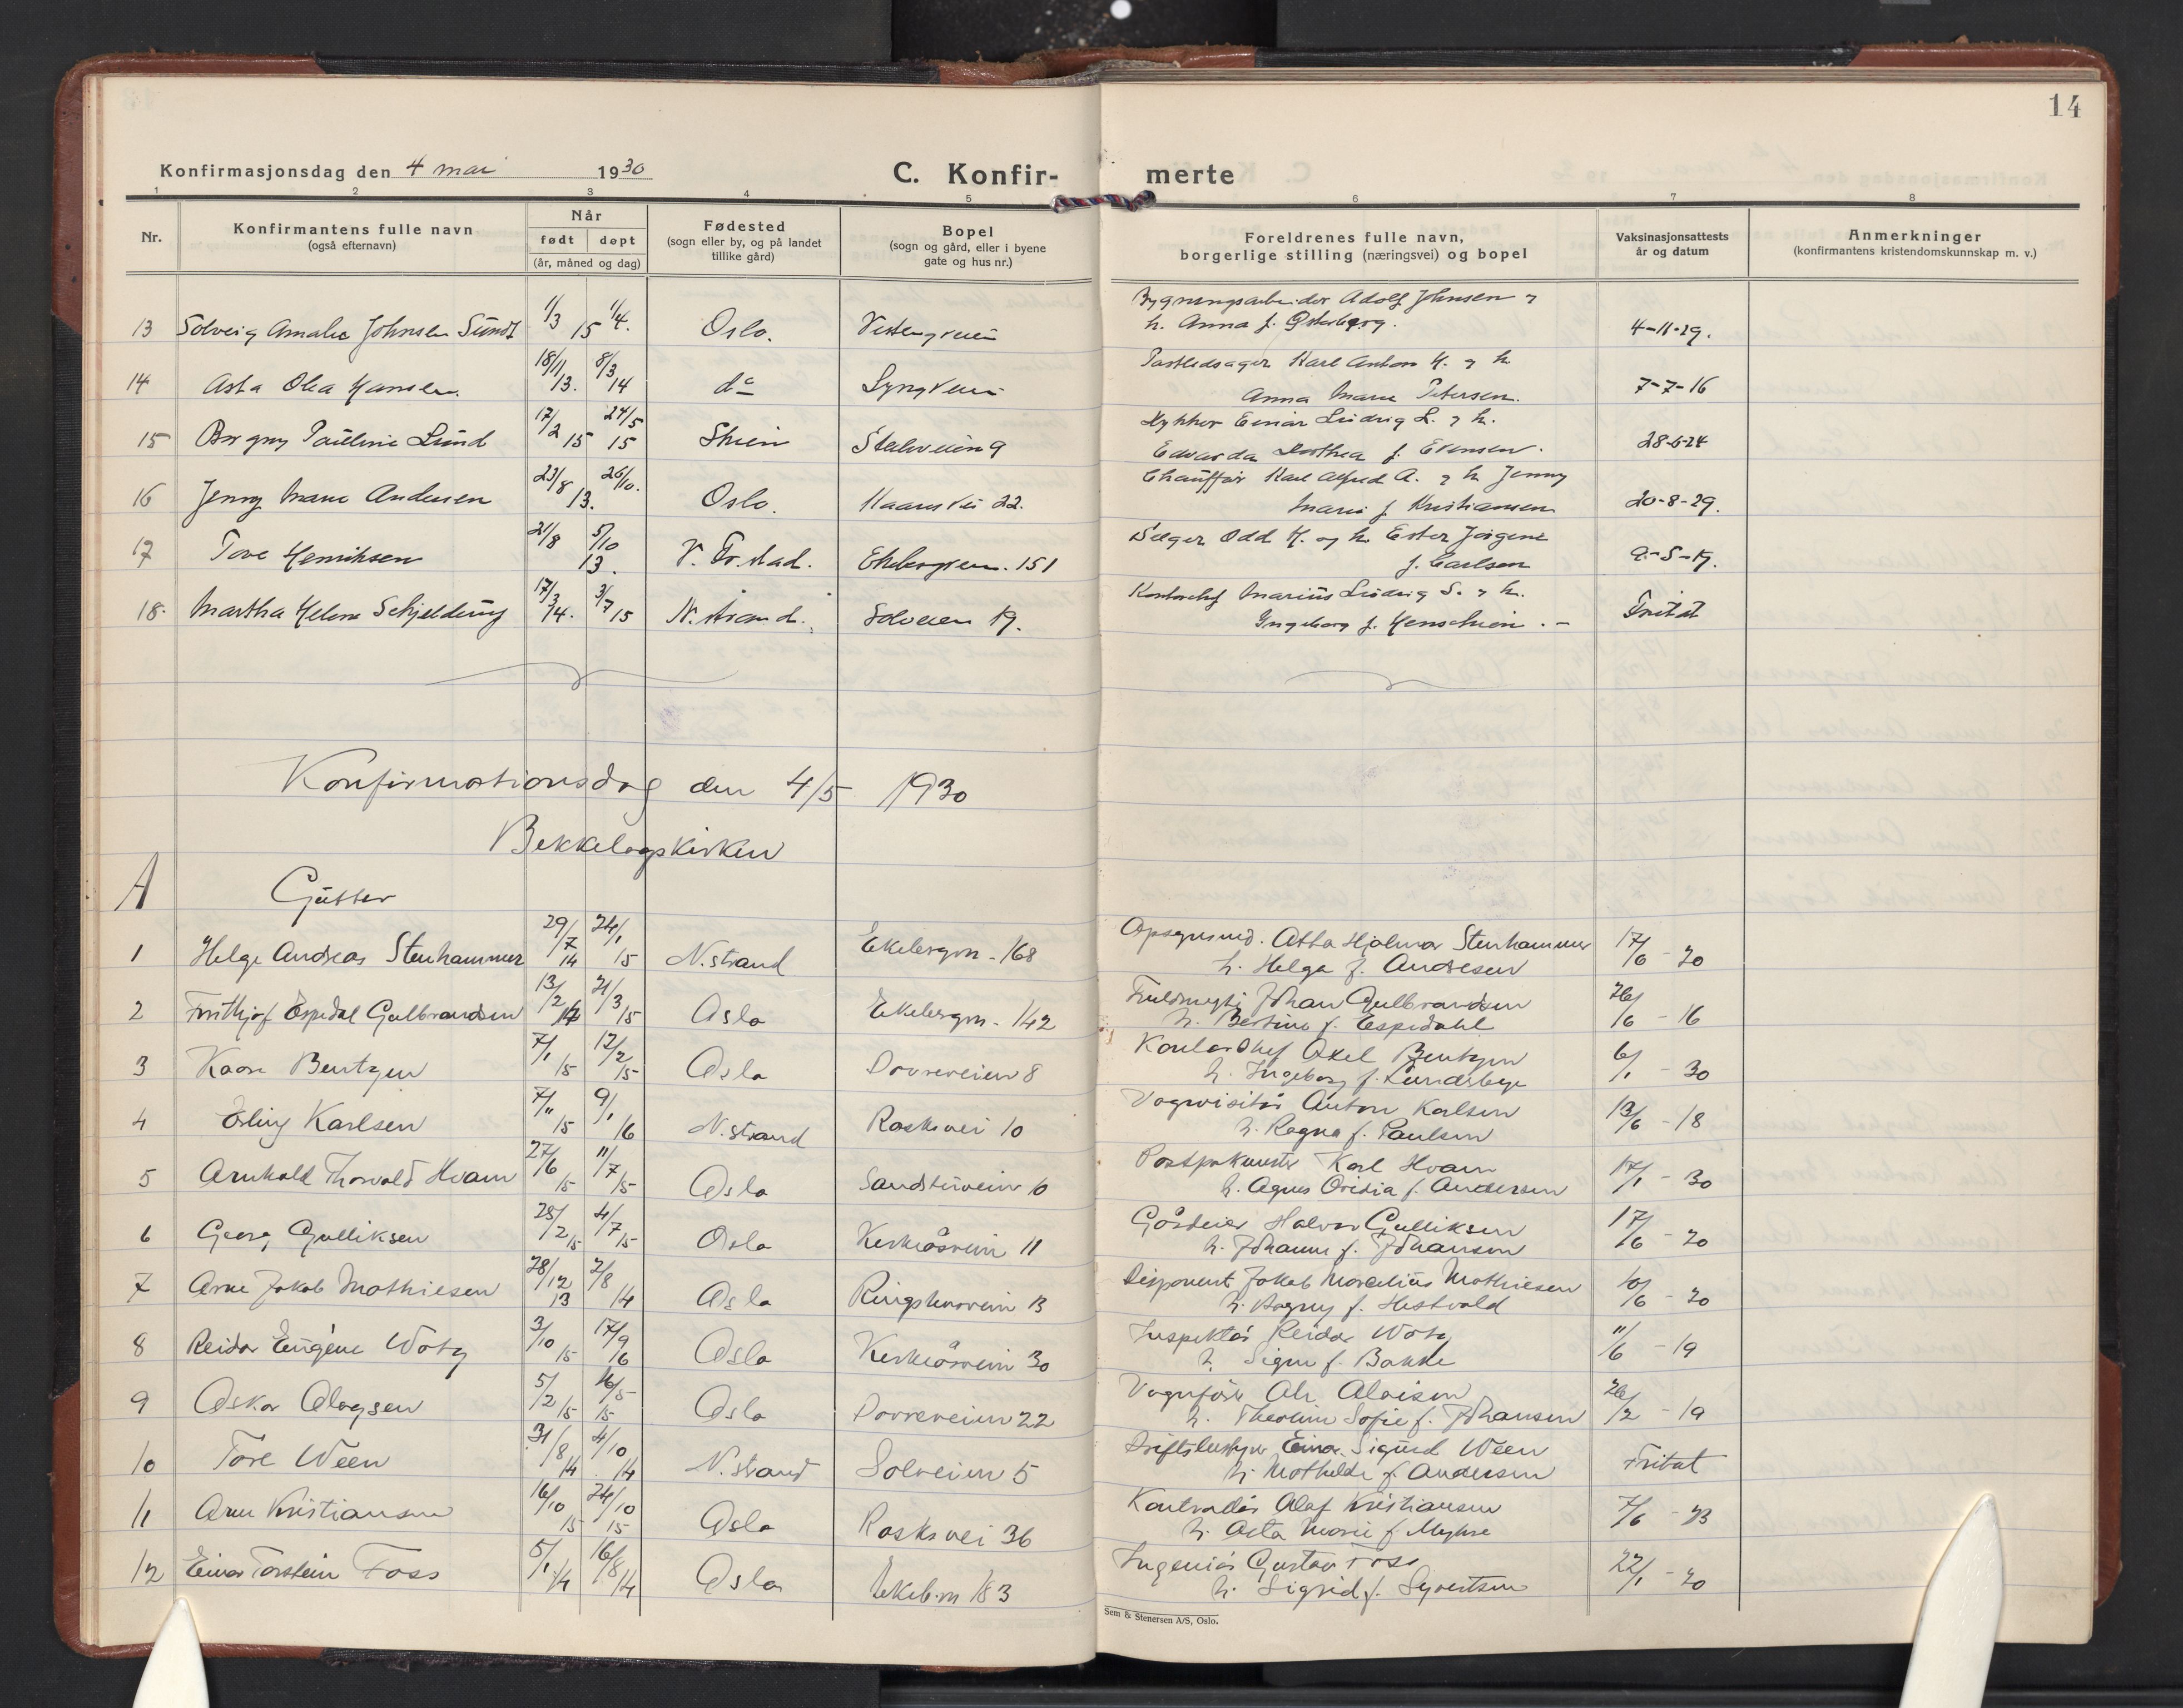 14
Konfirmasjonsdag den 4 mai 1930
C. Konfir- merte
1 2 3 4 5 6 7 8
Nr.
Konfirmantens fulle navn
(også efternavn)
Når
født døpt
(år, måned og dag)
Fødested
(sogn eller by, og på landet
tillike gård)
Bopel
(sogn og gård, eller i byene
gate og hus nr.)
Foreldrenes fulle navn,
borgerlige stilling (næringsvei) og bopel
Vaksinasjonsattests
år og datum
Anmerkninger
(konfirmantens kristendomskunnskap m. v.)
Bygningsarbeider Adolf Johnsen
13 Solveig Amalie Johnsen Sundt 1/3 15 1/4. Oslo. h. Anna f. 4-11-29.
Karl Anton H. og h.
14 Asta Olea Hansen. 18/11 13. 8/3 14 do Lyngveien Anna Marie Petersen. 7-7-16
Einar Ludvig L. og h.
15 Borgny Pauline Lund 17/2 15 24/5 15 Skien 9 Edvarda Dorthea f. Evensen. 28-6-24
Chauffør Karl Alfred A. og h. Jenny
16 Jenny Marie Andersen 23/8 13. 26/10. Oslo. 22. Marie f. Kristiansen 20-8-29.
Selger Odd H. og h. Ester Jørgene
17 Tove Henriksen 21/8 5/10 13. V. Fr.stad. Ekebergveien. 151 f. Carlsen 9-5-19.
Kontorchef Marius Ludvig S. og h.
18. Martha Helene Schjelderup 17/3 14. 3/7 15 N. strand. Solveien 19. Ingeborg f. Henschien. - Fritat
Konfirmationsdag den 4/5 1930
Bekkelagskirken
A Gutter
1 Helge Andreas Stenhammer 29/7 14 24/1 15 N.strand Ekebergvn - 168 Opsynsmd. Otto Hjalmar Stenhammer 17/6 - 20
h. Helga f. Andresen
2 Frithjof Espedal Gulbrandsen 13/2 21/3 15 Oslo Ekebergvn - 142 Fuldmegti Johan Gulbrandsen 26/6 - 16
h. Bertine f. Espedahl
3 Kaare Bentzen 7/1 15 12/2 15 Oslo Dovreveien 8 Kontorchef Axel Bentzen 6/1 - 30
h. Ingeborg f. Lundsbye
4 Erling Karlsen 7/11 15 9/1 16 N.strand Raskevei 10 Vognvisitør Anton Karlsen 13/6 - 18
h. Ragna f. Paulsen
5 Arnhold Thorvald Hvam 27/6 15 11/7 15 Oslo Sandstuveien 10 Postpakmester Karl Hvam 17/1 - 30
h. Agnes Ovidia f. Andersen
6 Georg Gulliksen 28/2 15 4/7 15 Oslo 11 Gårdeier Halvor Gulliksen 17/6 - 20
h. Johanne f. Johansen
7 Arne Jakob Mathiesen 28/12 13 2/8 14 Oslo Ringshusveien 13 Disponent Jakob Marcelius Mathiesen 10/6 - 20
h. Dagny f. Hestvold
8 Reidar Eugène Woty 3/10 15 17/9 16 Oslo 30 Inspektør Reidar Woty 11/6 - 19
h. Signe f. Bakke
9 Oskar Aloysen 5/2 15 16/5 15 Oslo Dovreveien 22 Vognfører 26/2 - 19
h. Theoline Sofie f. Johansen
10 Tore Wèen 31/8 14 4/10 14 N.strand Solveien 5 Driftsbestyrer Einar Sigurd Wèen Fritat
h. Mathilde f. Andersen
11 Arne Kristiansen 16/10 15 24/10 15 Oslo Raskevei 36 Kontrollør Olaf Kristiansen 7/6 - 23
h. Asta Marie f. Myhre
12 Einar Torstein Foss 5/1 14 16/8 14 Oslo Ekeb.vn 183 Ingeniør Gustav Foss 22/1 - 20
h. Sigrid f. Syvertsen
Sem & Stenersen A/S, Oslo.